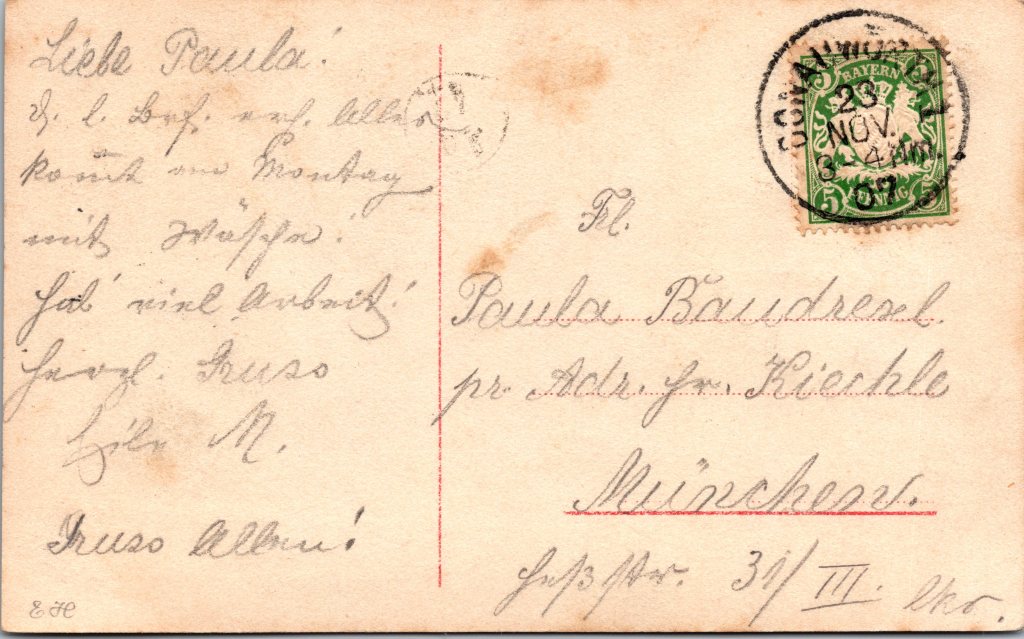 Liebe Paula!
D. l. Brf. erh. Alles
kommt am Montag
mit Wäsche!
Hab' viel Arbeit!
Herzl. Gruss
M.
Gruss Allen!
E H
BAYERN
5 5
PFENNIG
23
NOV.
3-4 NM.
07
Frl.
Paula Baudrexl.
pr. Adr. Hr. Kiechle
München.
Heßstr. 31/III. lks.